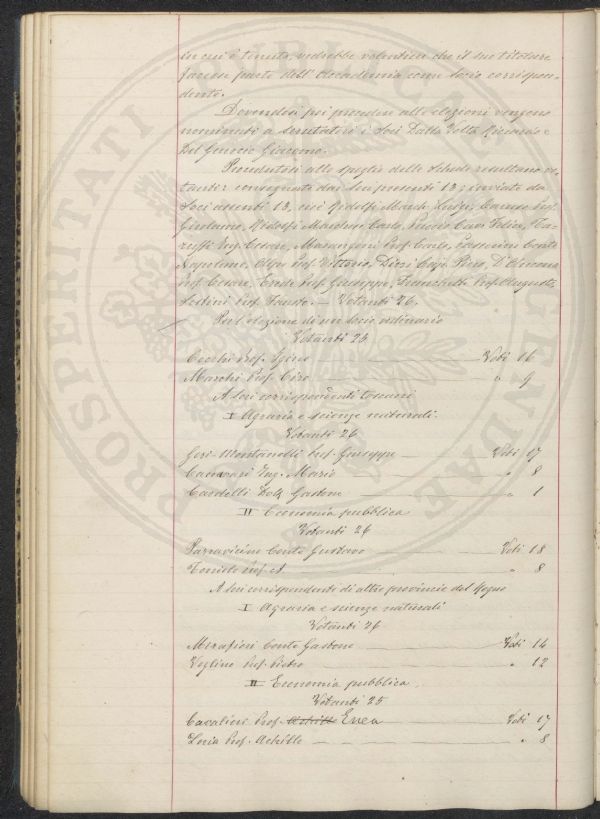 in cui è tenuto, vedrebbe volentieri che il suo titolare
facesse parte dell'Accademia come socio corrispon-
dente.
Dovendosi poi procedere alle elezioni vengono
nominati a scrutatori i Soci Dalla Volta Riccardo e
Del Guercio Giacomo.
Procedutosi allo spoglio delle schede resultano vo-
tanti: consegnate dai Soci presenti 13; inviate da
Soci assenti 13, cioè Ridolfi March. Luigi, Caruso Prof.
Girolamo, Ridolfi Marchese Carlo, Puccio Cav. Felice,
Ing. Cesare, Marangoni Prof. Carlo, Passerini Conte
Napoleone, Alpe Prof. Vittorio, Diesi Cap. Pirro, D'Ancona
Prof. Cesare, Prof. Giuseppe, Franchetti Prof. Augusto,
Sestini Prof. Fausto. — Votanti 26.
Per l'elezione di un Socio ordinario
Votanti 25
Cecchi Prof. Gino — Voti 16
Marchi Prof. Ciro — " 9
A Soci corrispondenti toscani
I Agraria e scienze naturali.
Votanti 26
Gori-Montanelli Prof. Giuseppe — Voti 17
Canavari Ing. Mario — " 8
Cardelli Dott. Gastone — " 1
II Economia pubblica
Votanti 26
Parravicino Conte Gustavo — Voti 18
Toniolo Prof. A — " 8
A Soci corrispondenti di altre provincie del Regno
I Agraria e scienze naturali
Votanti 26
Mirafiori Conte Gastone — Voti 14
Voglino Prof. Pietro — " 12
II Economia pubblica.
Votanti 25
Cavalieri Prof. Achille Enea — Voti 17
Loria Prof. Achille — — — " 8
PROSPERITATI PUBLICAE AUGENDAE